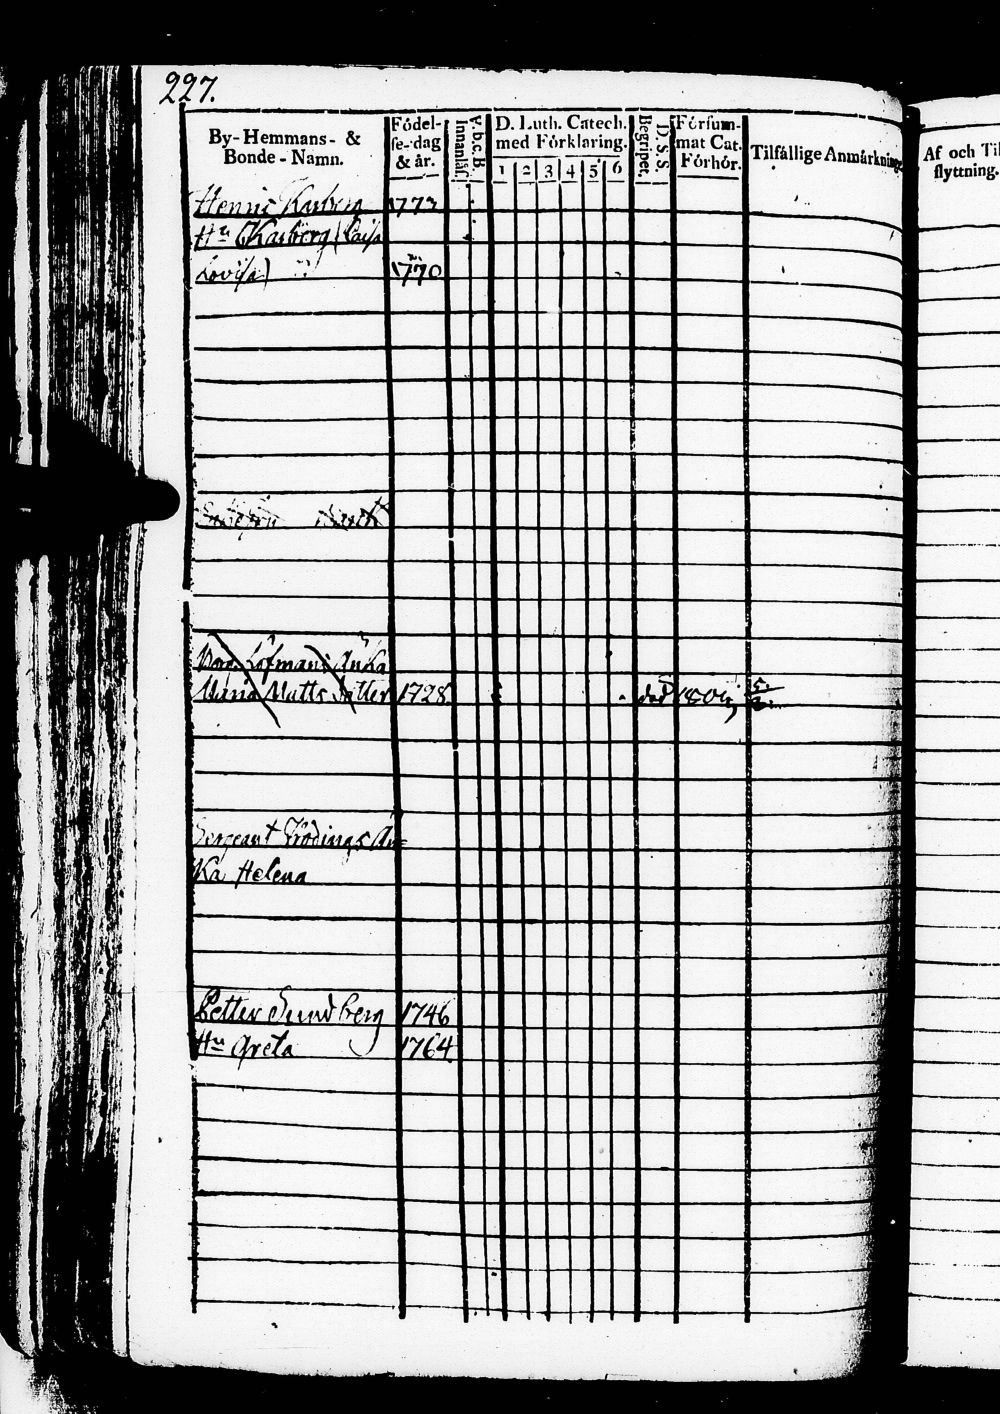 227.
By-Hemmans- &
Bonde-Namn.
Födel-
se-dag
& år.
Innanläs.
A.b.c.B.
D. Luth. Catech.
med Förklaring.
1 2 3 4 5 6
Begripet.
D.S.S.
Försum-
mat Cat.
Förhör.
Tilfällige Anmärkning
Af och Til
flyttning.
Henric Karberg 1773
Hu Karberg (Caisa
Lovisa) 1770
Löfmans Änka
Maria Matts Dotter 1728. död 180
Sergeant Frödings Än=
ka Helena
Petter Sundberg 1746
Hu Greta 1764